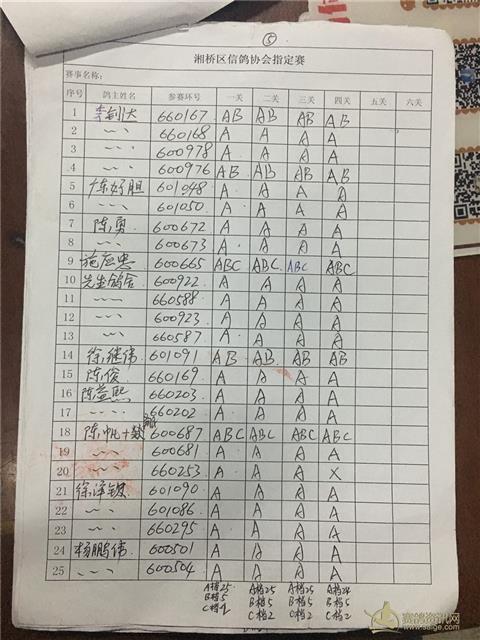 ⑤
湘桥区信鸽协会指定赛
赛事名称:
序号 鸽主姓名 参赛环号 一关 二关 三关 四关 五关 六关
1 李剑达 660167 AB AB AB AB
2 〃 660168 A A A A
3 〃 600978 A A A A
4 〃 600976 AB AB AB AB
5 陈好胆 601048 A A A A
6 〃 601050 A A A A
7 陈勇 600672 A A A A
8 〃 600673 A A A A
9 施应忠 600665 ABC ABC ABC ABC
10 先生鸽舍 600922 A A A A
11 〃 660588 A A A A
12 〃 600923 A A A A
13 〃 660587 A A A A
14 徐继伟 601091 AB AB AB AB
15 陈俊 660169 A A A A
16 陈益熙 660203 A A A A
17 〃 660202 A A A A
18 600687 ABC ABC ABC ABC
19 〃 600681 A A A A
20 〃 660253 A A A X
21 601090 A A A A
22 〃 601086 A A A A
23 〃 660295 A A A A
24 杨鹏伟 600501 A A A A
25 〃 600504 A A A A
A档25 A档25 A档25 A档24
B档5 B档5 B档5 B档5
C档2 C档2 C档2
赛鸽资讯网
www.saige.com